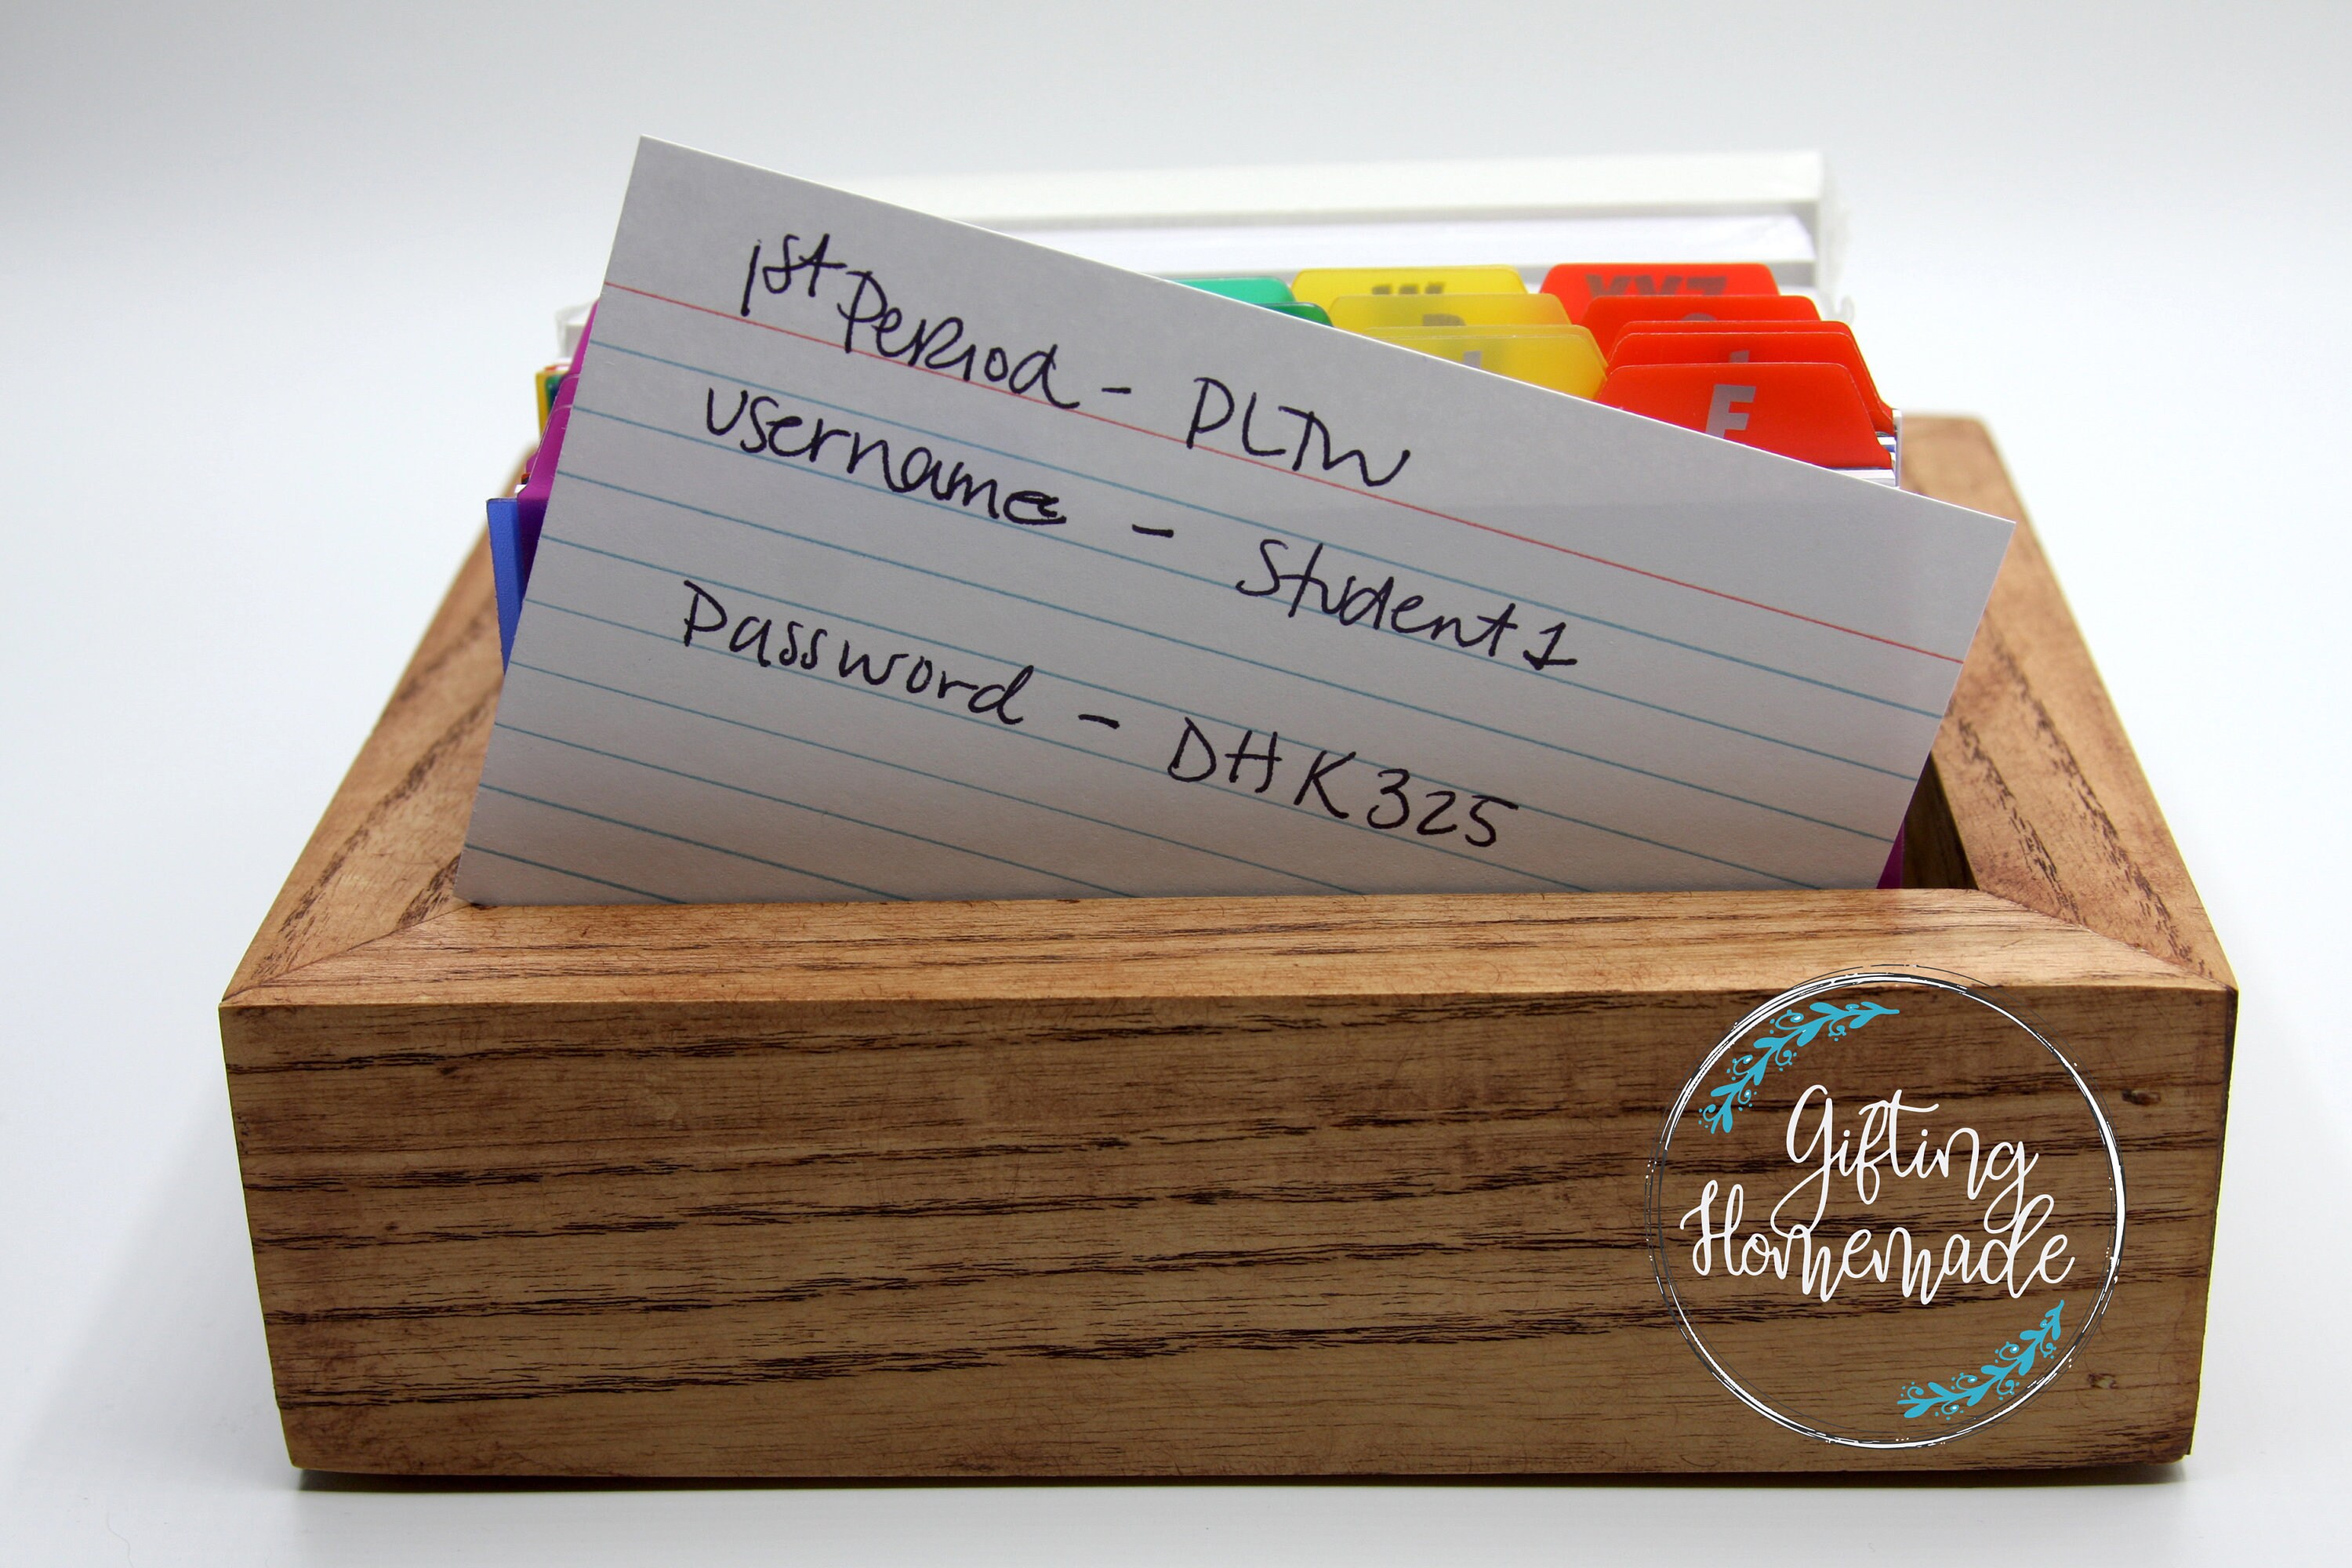 XYZ
W
F
1st Period - PLTW
username - Student1
Password - DHK325
Gifting
Homemade